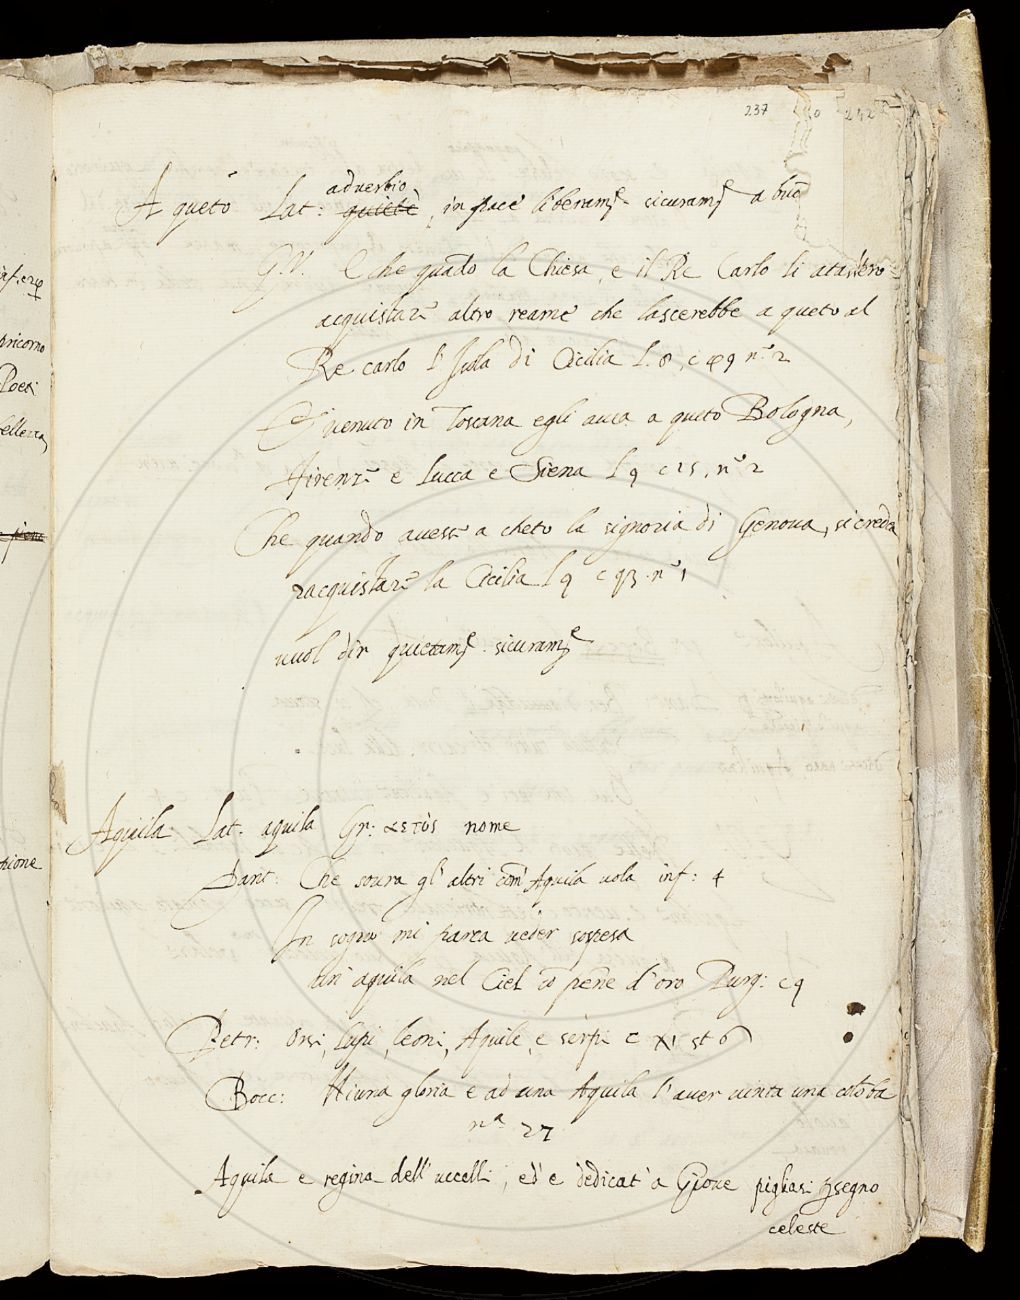 237
242
adverbio
A queto Lat: quiete, in pace liberamte sicuramte a buō
G.V. E che quādo la Chiesa, e il Re Carlo li
acquistar altro reame che lascerebbe a queto al
Re carlo l'Isola di Cicilia l. 8, c 49 n.º 2
E venuto in Toscana egli avea a queto Bologna,
Firenze e Lucca e Siena l 9 c 25. n.º 2
Che quando avesse a cheto la signoria di Genova, si credea
racquistare la Cicilia l 9 c 93. n.º 1
vuol dir quietamte. sicuramte
Aquila Lat. aquila Gr: ἀετὸς nome
Dant: Che sovra gl'altri com' Aquila vola inf: 4
In sogno mi parea veder sospesa
un'aquila nel Ciel cō pene d'oro Purg: c 9
Petr: Orsi, Lupi, leoni, Aquile, e serpi c XI st 6
Bocc: Niuna gloria e ad una Aquila l'aver vinta una colōba
n.ª 27
Aquila e regina dell'uccelli, ed'e dedicat'a Giove pigliasi segno
celeste
pricorno
Poeti
ellezza,
zione